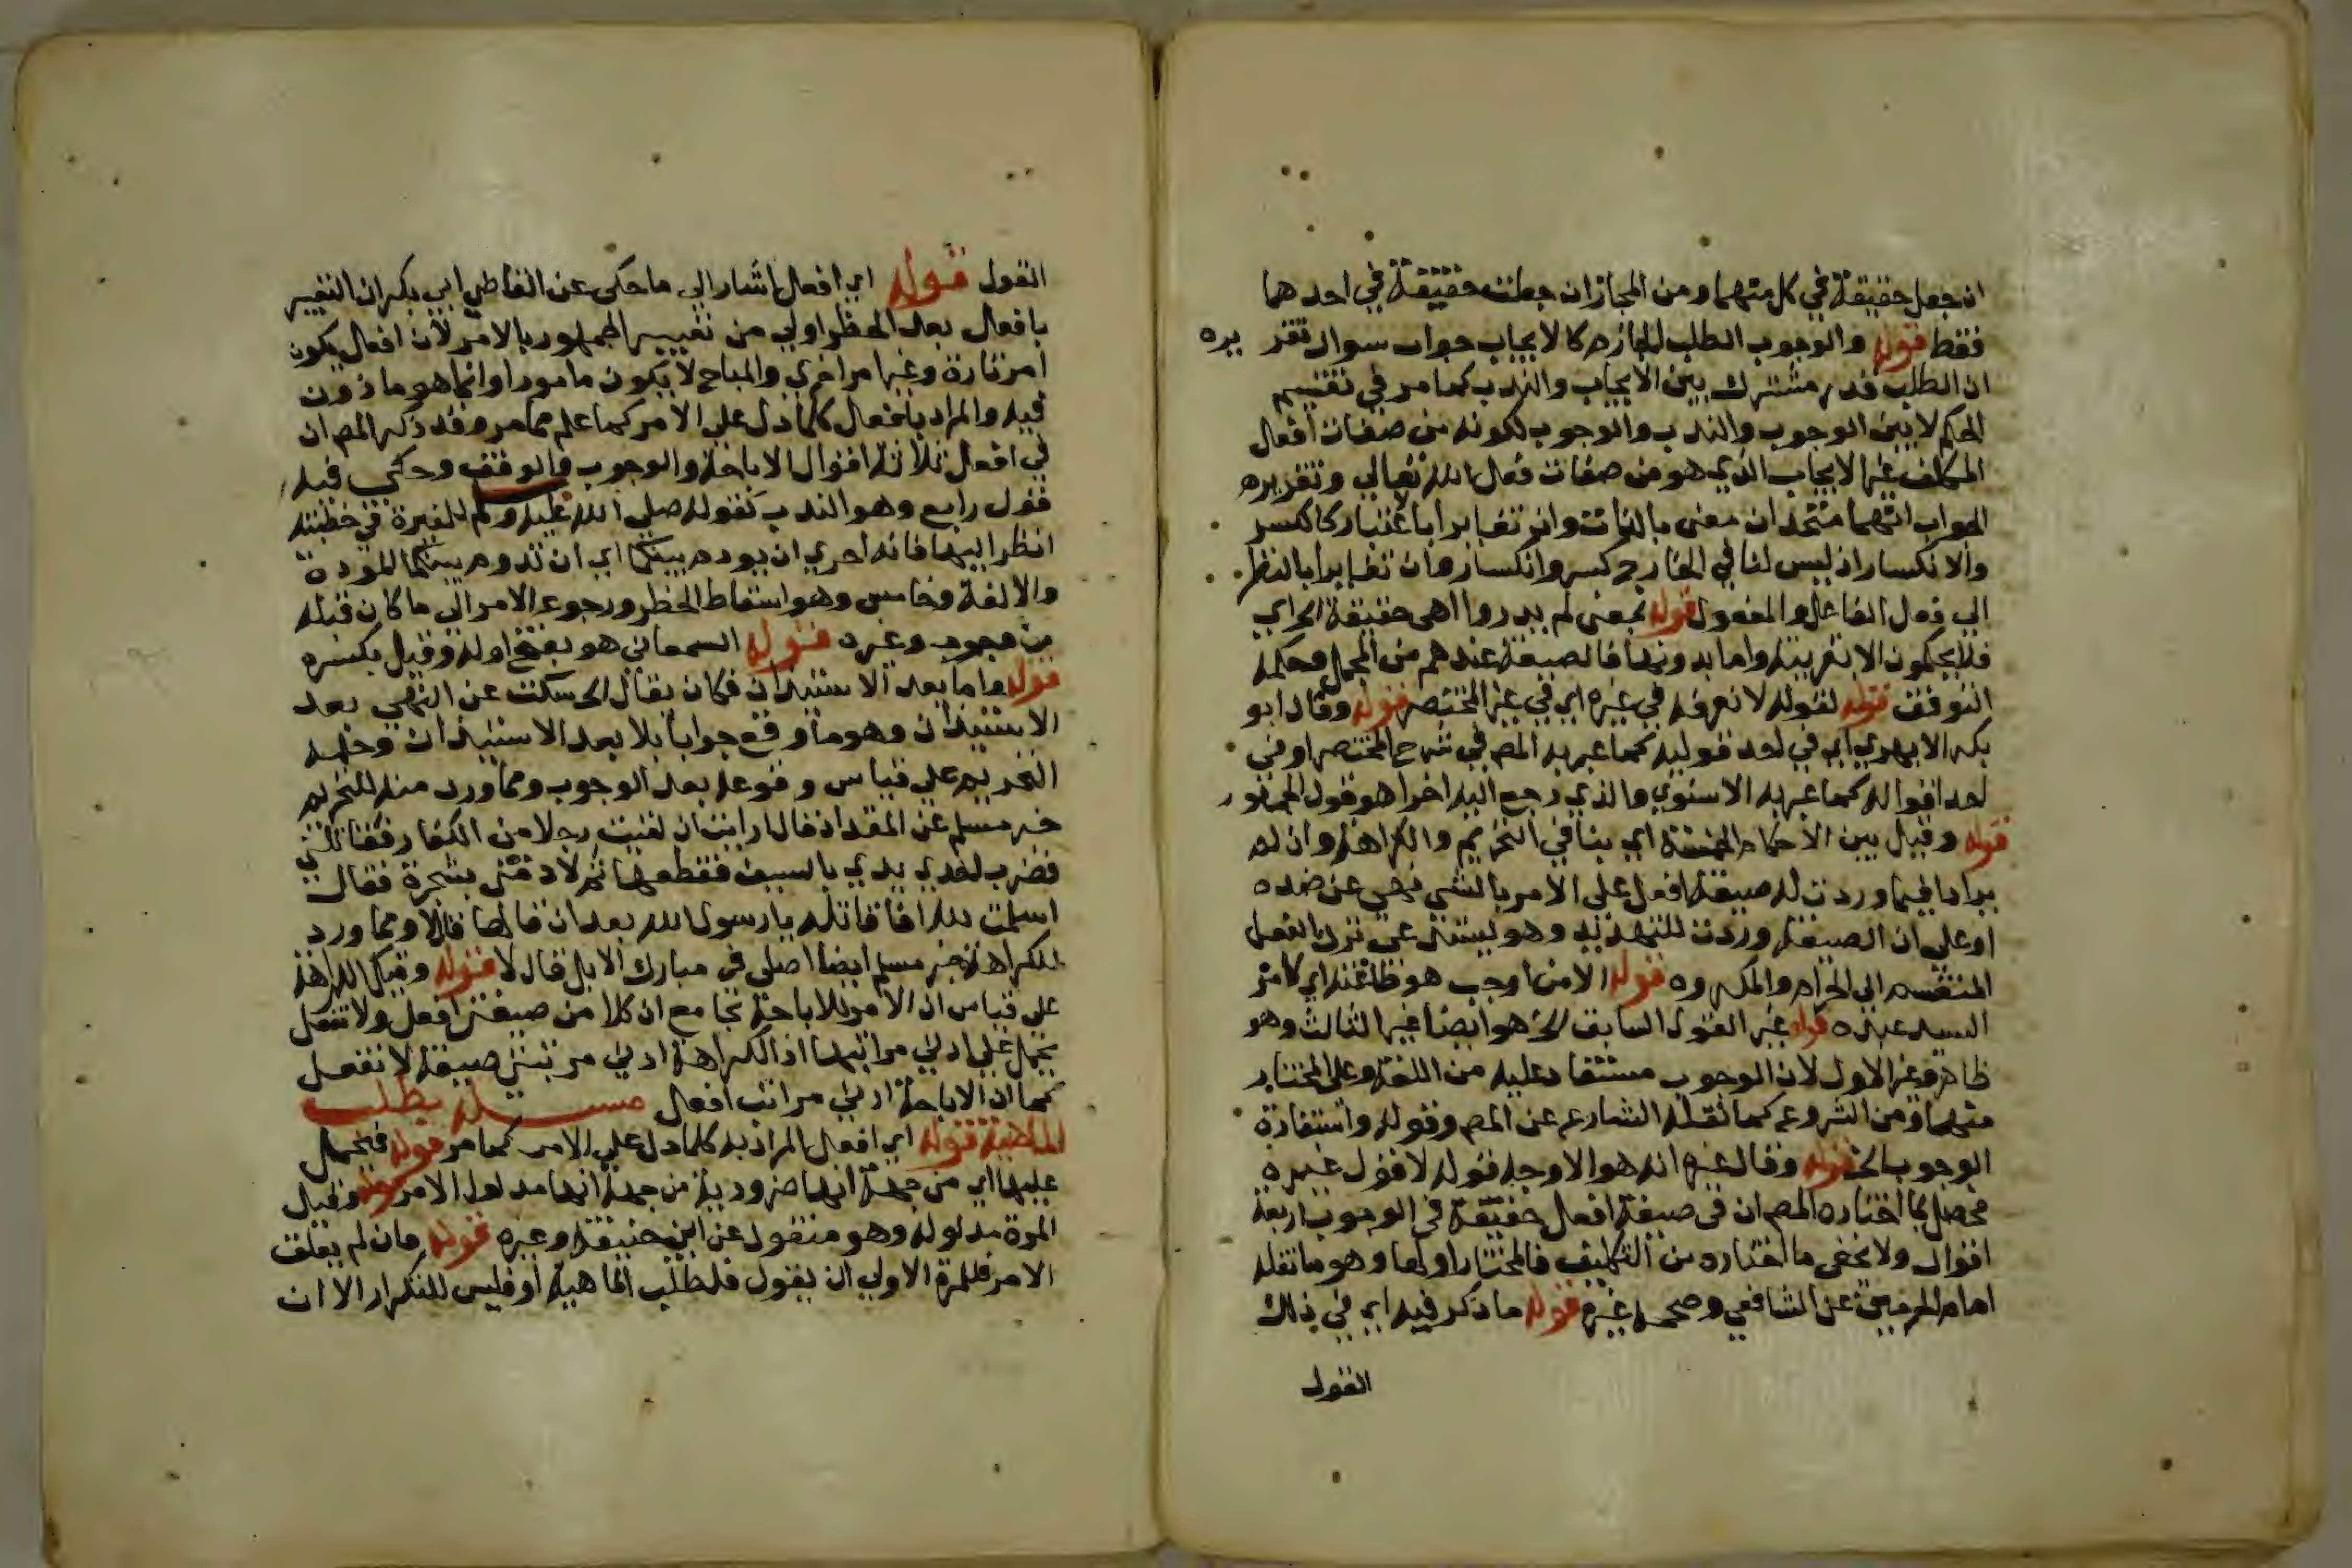 ان جعل حقيقة في كل منهما ومن المجاز ان جعلت حقيقة في احدهما
فقط قوله والوجوب الطلب الجازم كالايجاب جواب سوال تقريره
ان الطلب قدر مشترك بين الايجاب والندب كما مر في تقسيم
الحكم لا بين الوجوب والندب والوجوب لكونه من صفات افعال
المكلف غير الايجاب الذي هو من صفات فعل الله تعالي وتقريره
الجواب انهما متحدان معنى بالذات وان تغايرا باعتبار كالكسر
والانكسار اذ ليس لنا في الخارج كسر وانكسار وان تغايرا بالنظر
الي فعل الفاعل والمفعول قوله بمعنى لم يدروا اهي حقيقة الخ اي
فلا يحكمون الا بقرينة واما بدونها فالصيغة عندهم من المجمل وحكمه
التوقف قوله لقوله لا نعرفه في غيره اي في غير المختصر قوله وقال ابو
بكر الابهري اي في احد قوليه كما عبر به المص في شرح المختصر او في
احد اقواله كما عبر به الاسنوي والذي رجع اليه اخرا هو قول الجمهور
قوله وقيل بين الاحكام الخمسة اي ينافي التحريم والكراهة وان لم
يرادا فيما وردت له صيغة افعل على الامر بالشي نهي عن ضده
او على ان الصيغة وردت للتهديد وهو يستدعي ترك الفعل
المنقسم الي الحرام والمكروه قوله الامن اوجب هو ظا عنه اي كامر
السيد عبده قوله غير القول السابق الخ هو ايضا غير الثالث وهو
ظاهر وغير الاول لان الوجوب مستفاد عليه من اللغة وعلى المختار
منهما ومن الشرع كما نقله الشارع عن المص وقوله واستفادة
الوجوب الخ قوله وقال غيره انه هو الاوجه قوله لا قول غيره
محصل بما اختاره المص ان في صيغة افعل حقيقة في الوجوب اربعة
اقوال ولا يخفى ما اختاره من التكليف فالمختار اولها وهو ما نقله
امام الحرمين عن الشافعي وصححه غيره قوله ما ذكر فيه اي في ذلك
القول
القول قوله اي افعل اشار الي ما حكي عن القاضي ابي بكر ان التعبير
بافعل بعد الحظر اولي من تعبير الجمهور بالامر لان افعل يكون
امر تارة وغير امر اخري والمباح لا يكون مامورا وانما هو ماذون
فيه والمراد بافعل كلما دل علي الامر كما علم مما مر وقد ذكر المص ان
في افعل ثلاثة اقوال الاباحة والوجوب والوقف وحكي فيه
قول رابع وهو الندب كقوله صلي الله عليه وسلم للمغيرة في خطبته
انظر اليها فانه احري ان يودم بينكما اي ان تدوم بينكما المودة
والالفة وخامس وهو اسقاط الحظر ورجوع الامر الي ما كان قبله
من وجوب وغيره قوله السمعاني هو بفتح اوله وقيل بكسره
قوله واما بعد الاستيذان فكان يقال الخ سكت عن النهي بعد
الاستيذان وهو ما وقع جوابا بلا بعد الاستيذان وحمله
التحريم علي قياس وقوعه بعد الوجوب ومما ورد منه للتحريم
خبر مسلم عن المقداد قال ارايت ان لقيت رجلا من الكفار فقاتلني
فضرب احدي يدي بالسيف فقطعها ثم لاذ مني بشجرة فقال
اسلمت لله افاقاتله يارسول الله بعد ان قالها قال لا ومما ورد
للكراهة خبر مسلم ايضا اصلي في مبارك الابل قال لا قوله وقيل للكراهة
علي قياس ان الامر للاباحة بجامع ان كلا من صيغتي افعل ولا تفعل
يحمل علي ادني مراتبها اذ الكراهة ادني مرتبتي صيغة لا تفعل
كما ان الاباحة ادني مراتب افعل مسيلة بطلب
الماهية قوله اي افعل المراد به كلما دل علي الامر كما مر قوله فيحمل
عليها اي من جهة انها ضرورية من جهة انها مدلول الامر قوله وقيل
المرة مدلوله وهو منقول عن ابي حنيفة وغيره قوله وان لم يعلق
الامر فللمرة الاولي ان يقول فلطلب الماهية او فليس للتكرار الا ان